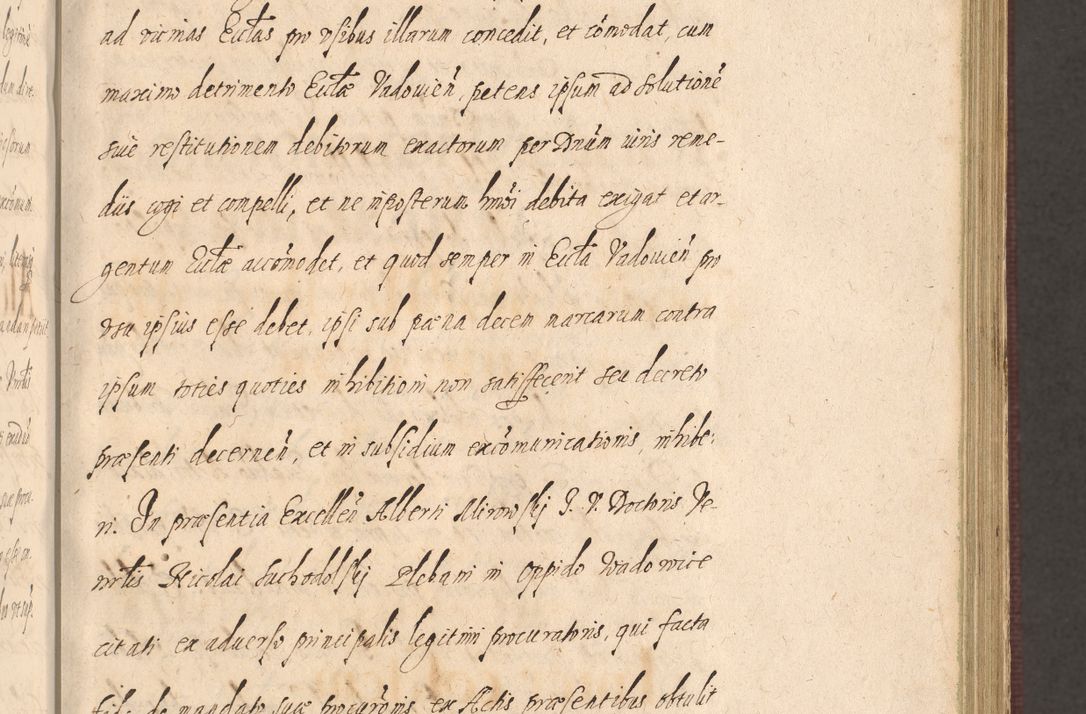 ad vicinas Ecctas pro vsibus illarum concedit, et comodat, cum
maximo detrimento Ecctæ Vadovien, petens ipsum ad solutione
sive restitutionem debitorum exactorum per Dnum iuris reme-
diis cogi et compelli, et ne inposterum hmoi debita exigat et ar-
gentum Ecctæ accomodet, et quod semper in Eccta Vadovien pro
vsu ipsius esse debet, ipsi sub pæna decem marcarum contra
ipsum toties quoties inhibitioni non satisfecerit seu decreto
præsenti decernen, et in subsidium excomunicationis, inhibe-
ri. In præsentia Excellen Alberti Mirowskj J. V. Doctoris Ve-
nrlis Nicolai Suchodolskj Plebani in Oppido Wadowice
citati ex adverso principalis legitimi procuratoris, qui facta
fide de mandato suæ procuronis ex Actis præsentibus obtulit